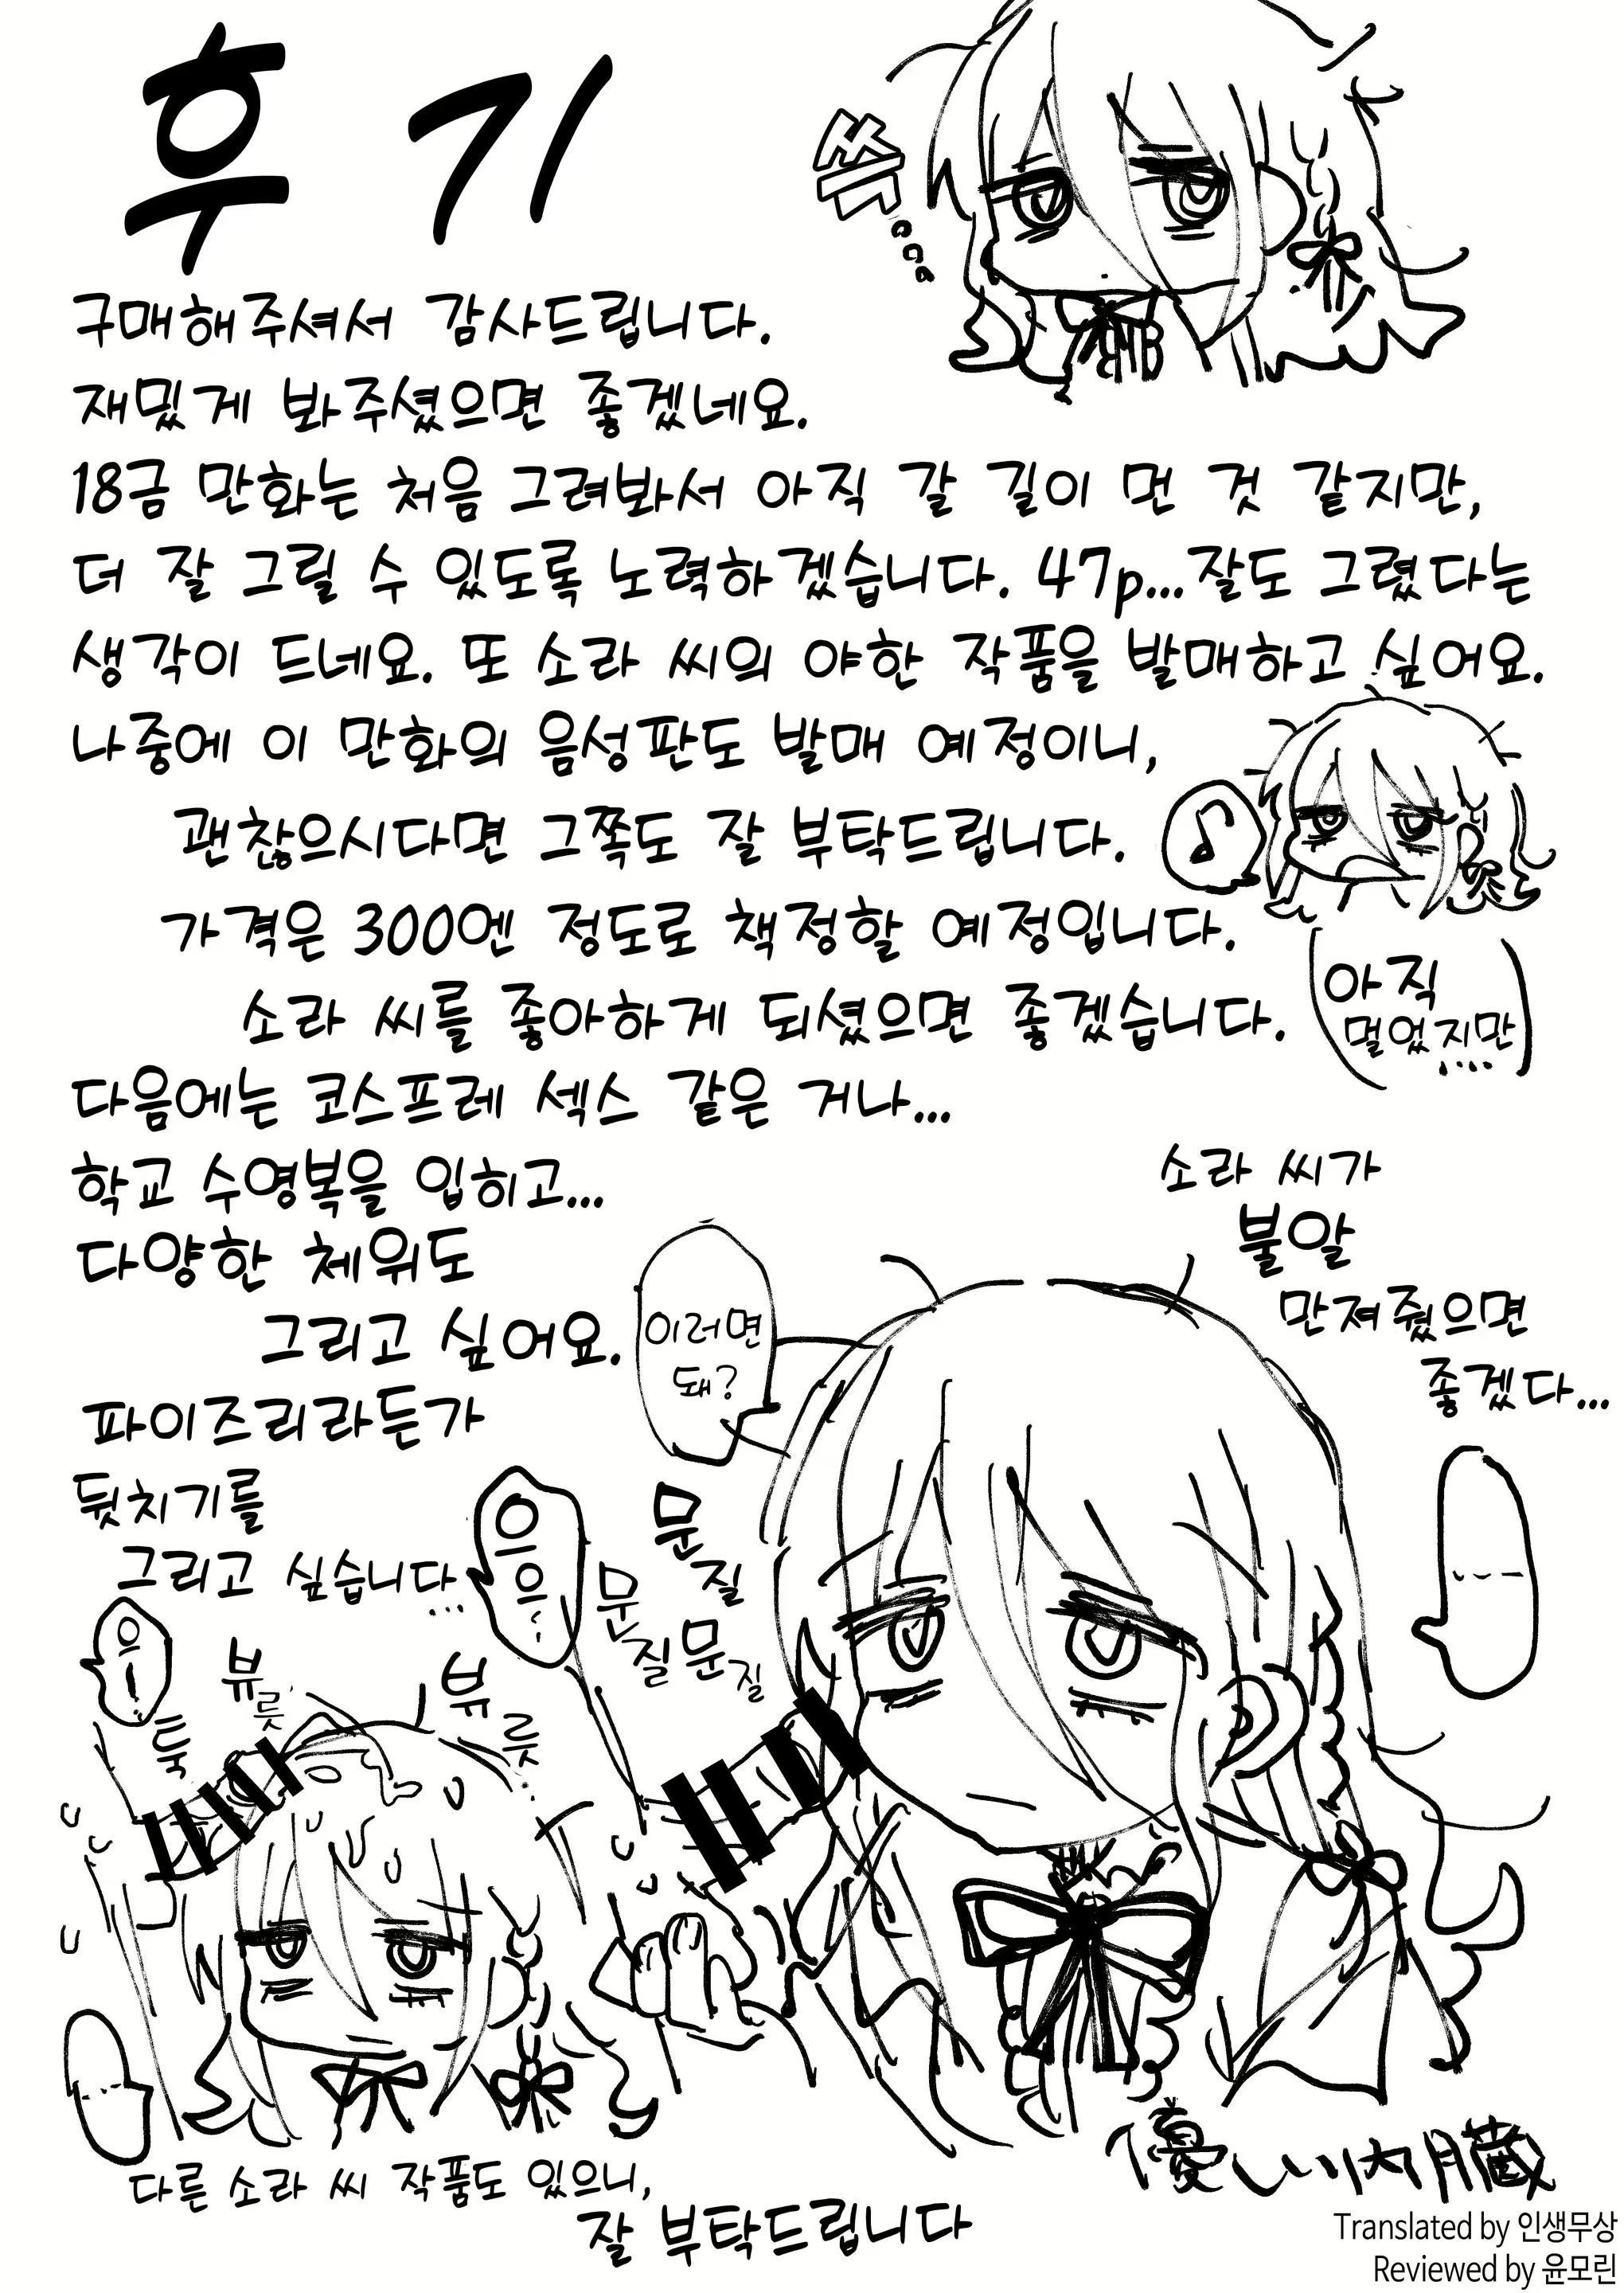 후기
쓱...
구매해주셔서 감사드립니다.
재밌게 봐주셨으면 좋겠네요.
18금 만화는 처음 그려봐서 아직 갈 길이 먼 것 같지만,
더 잘 그릴 수 있도록 노력하겠습니다. 47p...잘도 그렸다는
생각이 드네요. 또 소라 씨의 야한 작품을 발매하고 싶어요.
나중에 이 만화의 음성판도 발매 예정이니,
괜찮으시다면 그쪽도 잘 부탁드립니다.
가격은 300엔 정도로 책정할 예정입니다.
아직
멀었지만....
소라 씨를 좋아하게 되셨으면 좋겠습니다.
다음에는 코스프레 섹스 같은 거나...
학교 수영복을 입히고...
다양한 체위도
그리고 싶어요.
파이즈리라든가
뒷치기를
그리고 싶습니다...
소라 씨가
불알
만져줬으면
좋겠다...
이러면
돼?
으
으...
문질
문질문질
윽!
툭
뷰릇
뷰릇...
다른 소라 씨 작품도 있으니,
잘 부탁드립니다
優しい内臓
Translated by 인생무상
Reviewed by 윤모린